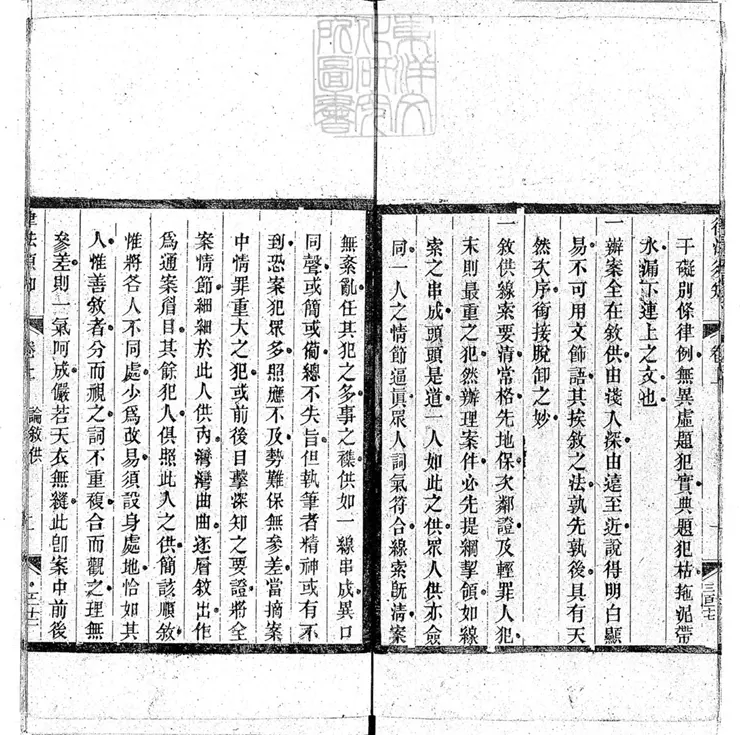 東洋文
化研究
所圖書
干礙別條律例無異虛題犯實典題犯枯拖泥帶
水漏下連上之文也
一辦案全在敘供由淺入深由遠至近說得明白顯
易不可用文飾語其挨敘之法孰先孰後具有天
然次序銜接脫卸之妙
一敘供線索要清常格先地保次鄰證及輕罪人犯
末則最重之犯然辦理案件必先提綱挈領如線
索之串成頭頭是道一人如此之供眾人供亦僉
同一人之情節逼真眾人詞氣符合線索既清案
無紊亂任其犯之多事之襍供如一線串成異口
同聲或簡或蕳總不失旨但執筆者精神或有不
到恐案犯眾多照應不及勢難保無參差當摘案
中情罪重大之犯或前後目擊深知之要證將全
案情節細細於此人供內灣灣曲曲逐層敘出作
為通案眉目其餘犯人俱照此人之供簡該順敘
惟將各人不同處少為改易須設身處地恰如其
人惟善敘者分而視之詞不重複合而觀之理無
參差則一氣呵成儼若天衣無縫此卽案中前後
律法須知
論敘供